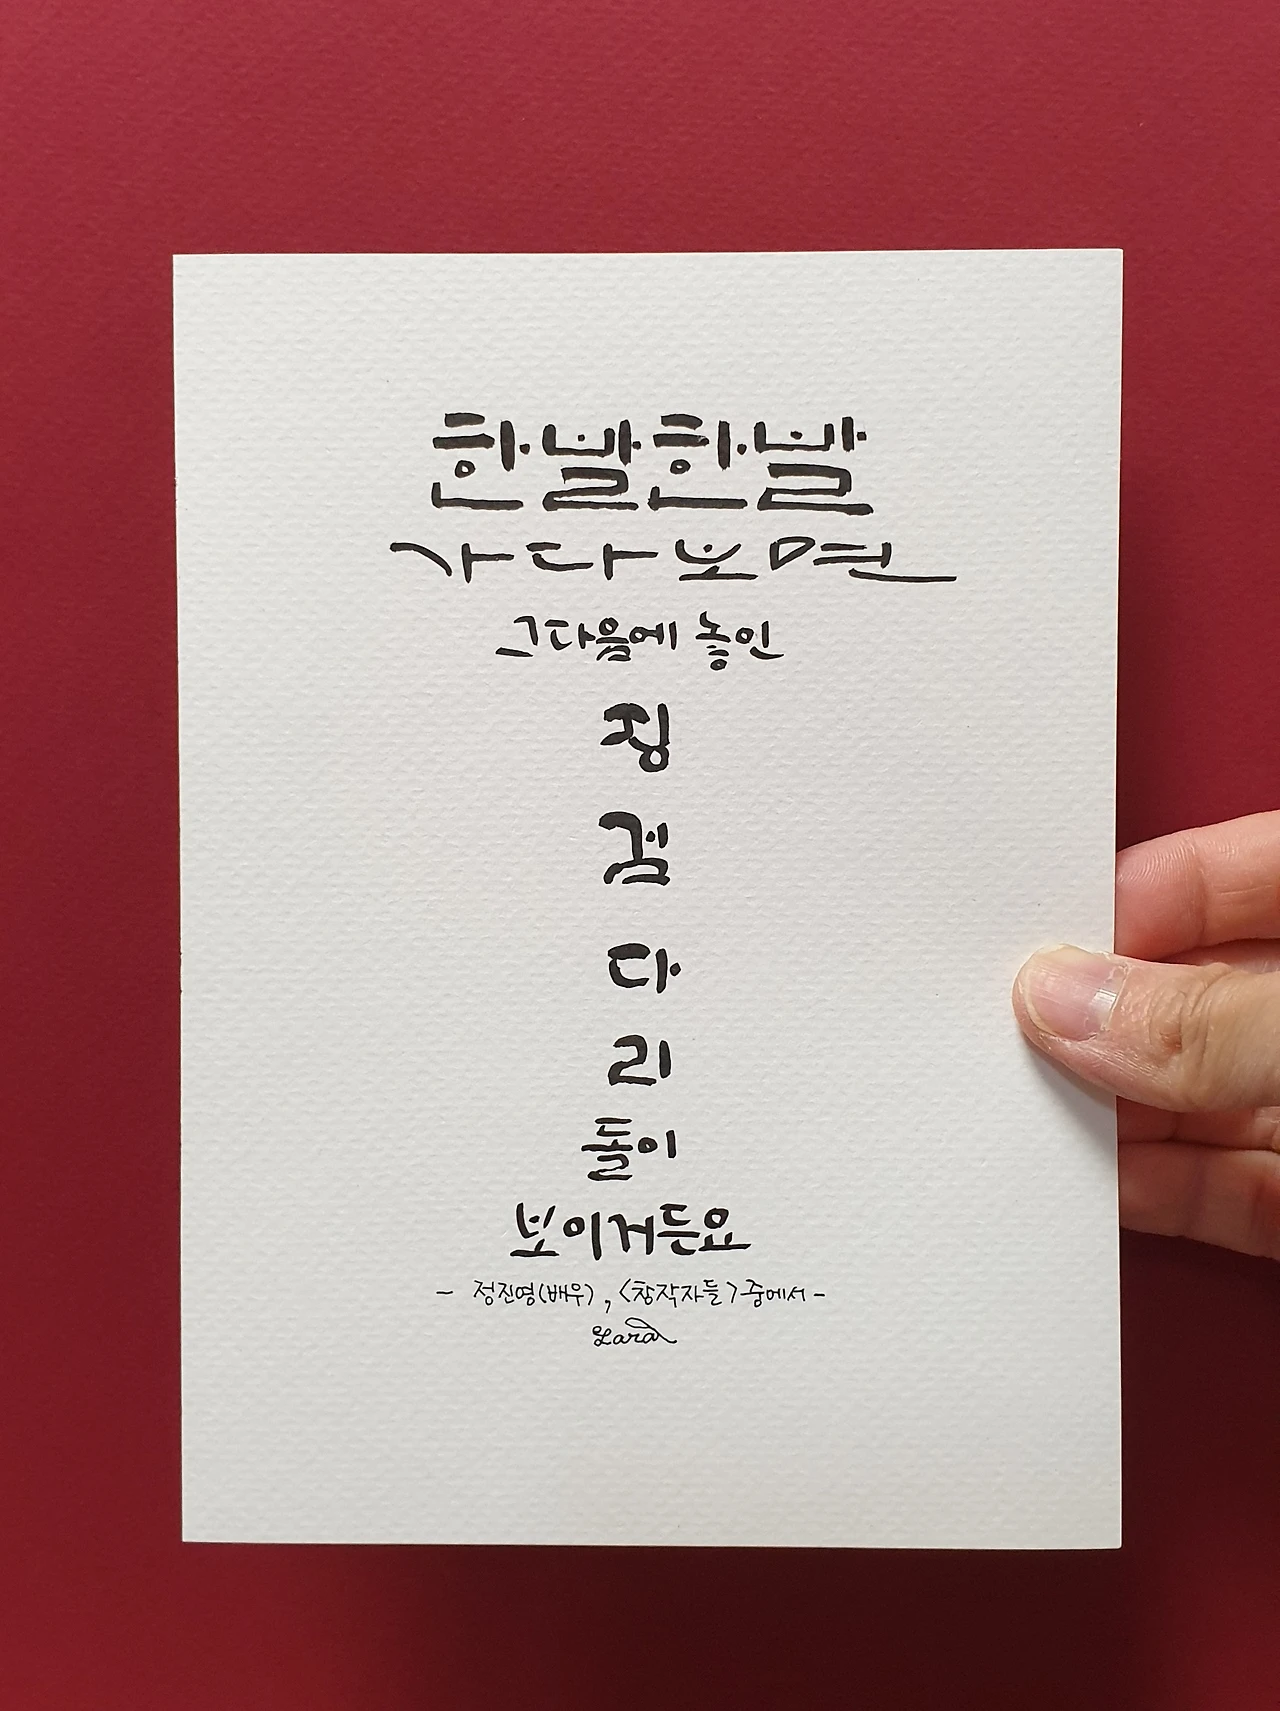 한발한발
가다보면
그다음에 놓인
징
검
다
리
돌이
보이거든요
- 정진영(배우), <창작자들>중에서-
Lara